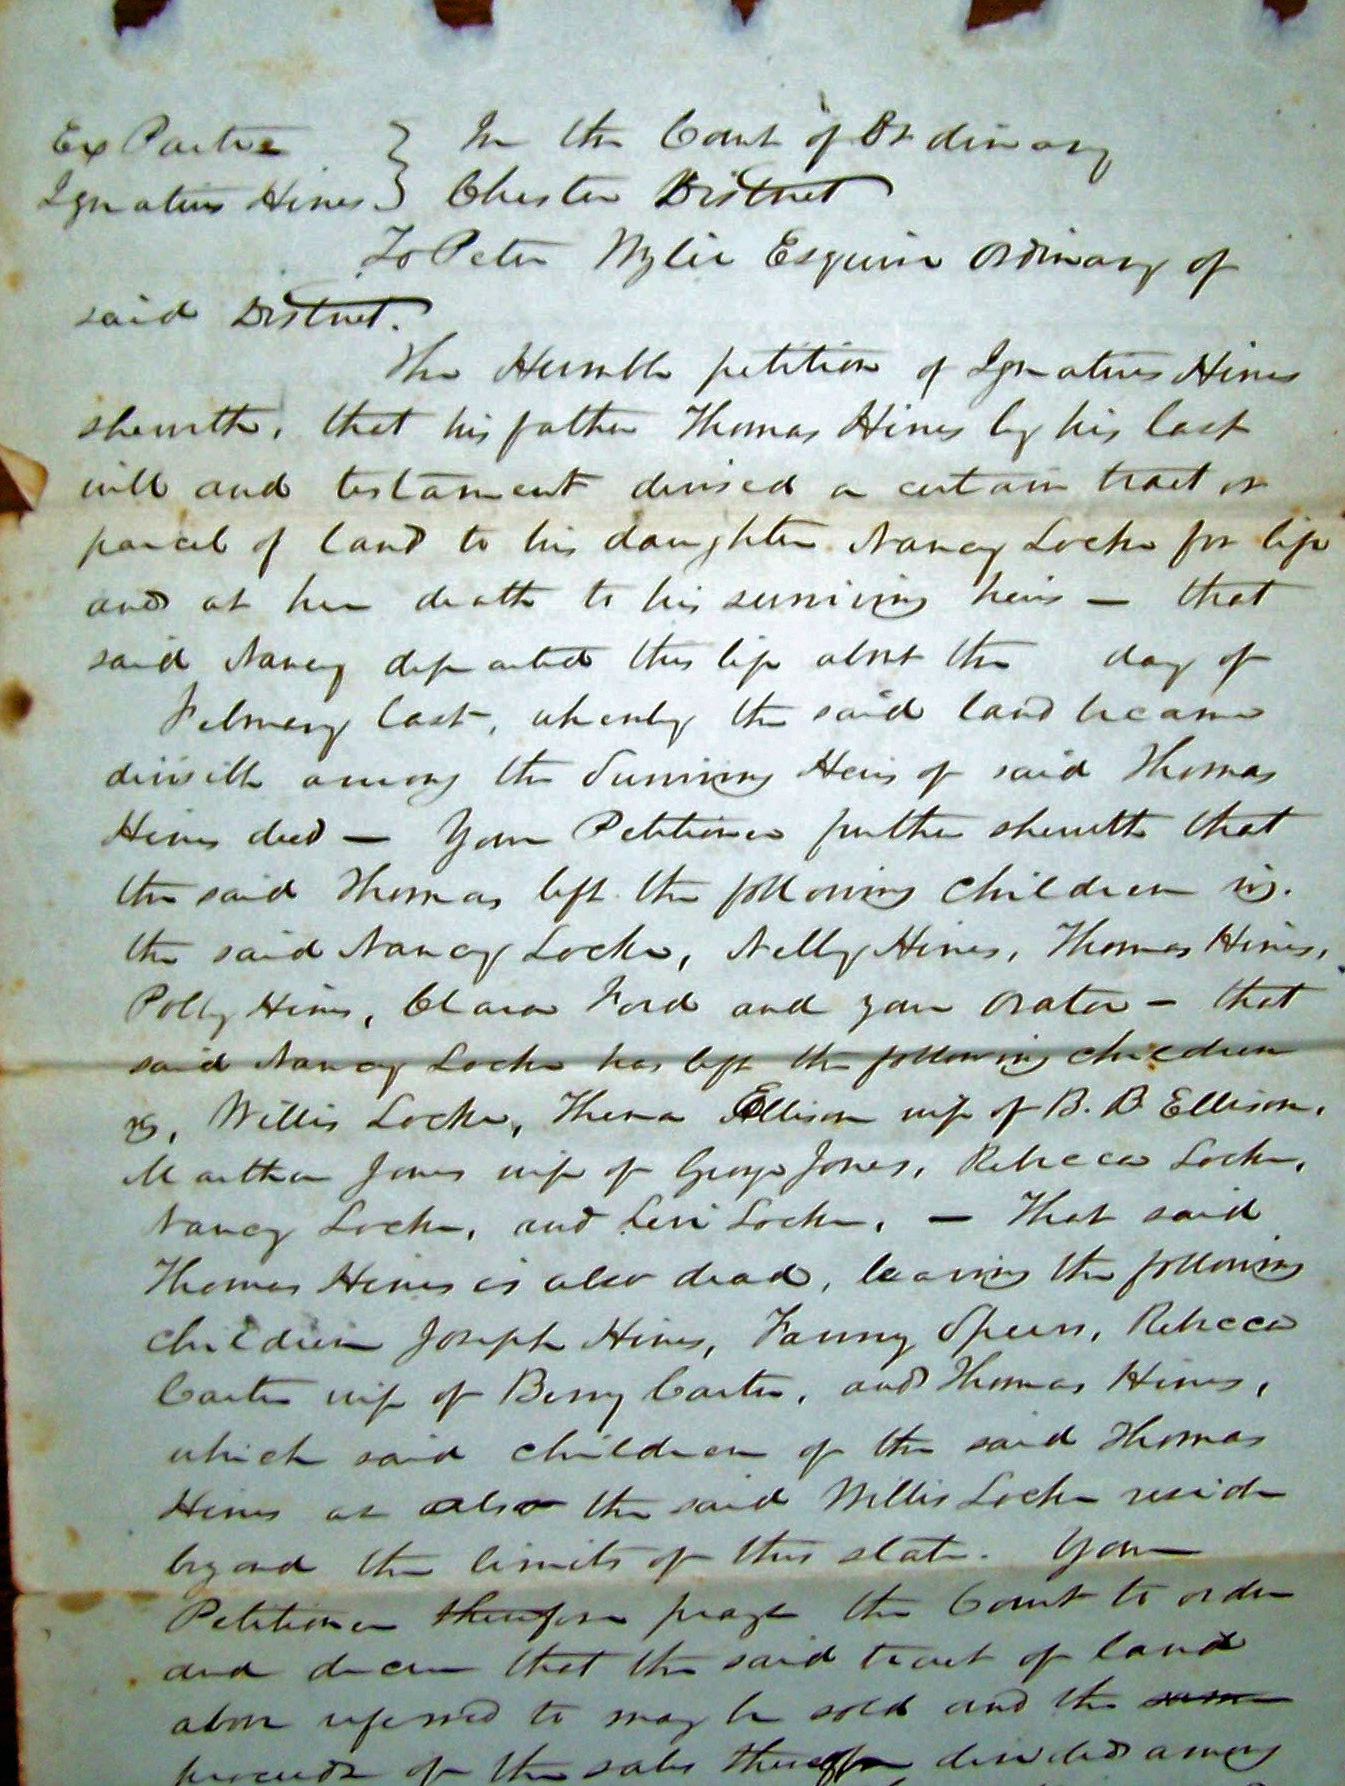 Ex Partie } In the Court of Ordinary
Ignatius Hines } Chester District
To Peter Wylie Esquire Ordinary of
said District.
The Humble petition of Ignatius Hines
sheweth, that his father Thomas Hines by his last
will and testament devised a certain tract or
parcel of land to his daughter Nancy Locke for life
and at her death to his surviving heirs — that
said Nancy departed this life about the day of
February last, whereby the said land became
divisible among the Surviving Heirs of said Thomas
Hines decd — Your Petitioner further sheweth that
the said Thomas left the following children viz.
the said Nancy Locke, Nelly Hines, Thomas Hines,
Polly Hines, Clara Ford and your orator — that
said Nancy Locke has left the following children
viz, Willis Locke, Thena Ellison wife of B. B Ellison,
Martha Jones wife of George Jones, Rebecca Locke,
Nancy Locke, and Levi Locke, — That said
Thomas Hines is also dead, leaving the following
children Joseph Hines, Fanny Speers, Rebecca
Carter wife of Berry Carter, and Thomas Hines,
which said children of the said Thomas
Hines as also the said Willis Locke reside
beyond the limits of this state. Your
Petitioner therefore prays the Court to order
and decree that the said tract of land
above referred to may be sold and the same
proceeds of the sales thereof divided among